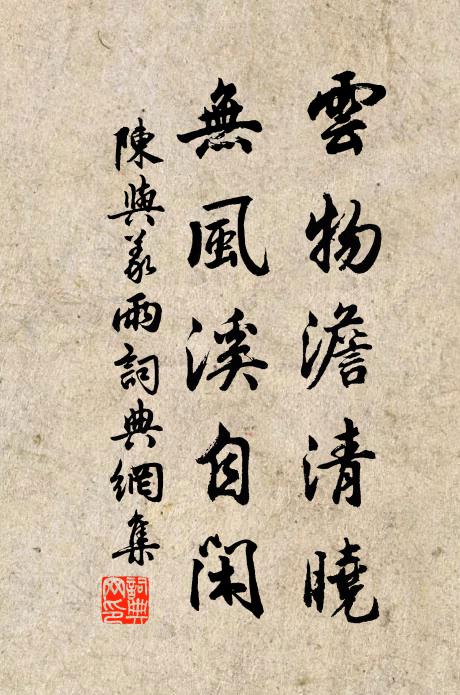 雲物澹清曉
無風溪自閑
陳與義雨詞典網集
詞典網印